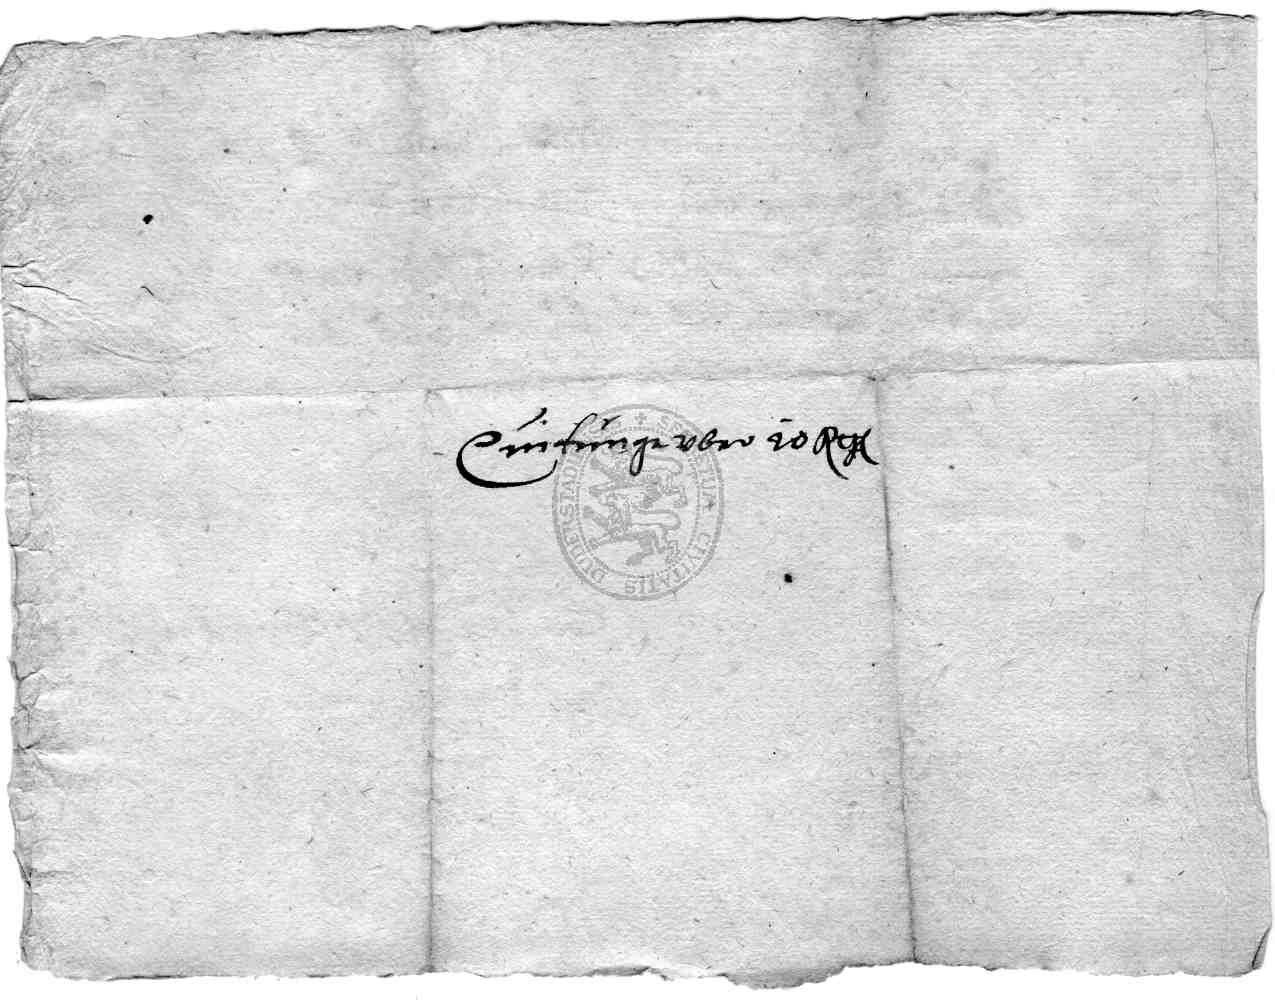 Quitunge vber 20 Rthl
SECRETUM CIVITATIS DUDERSTADENSIS